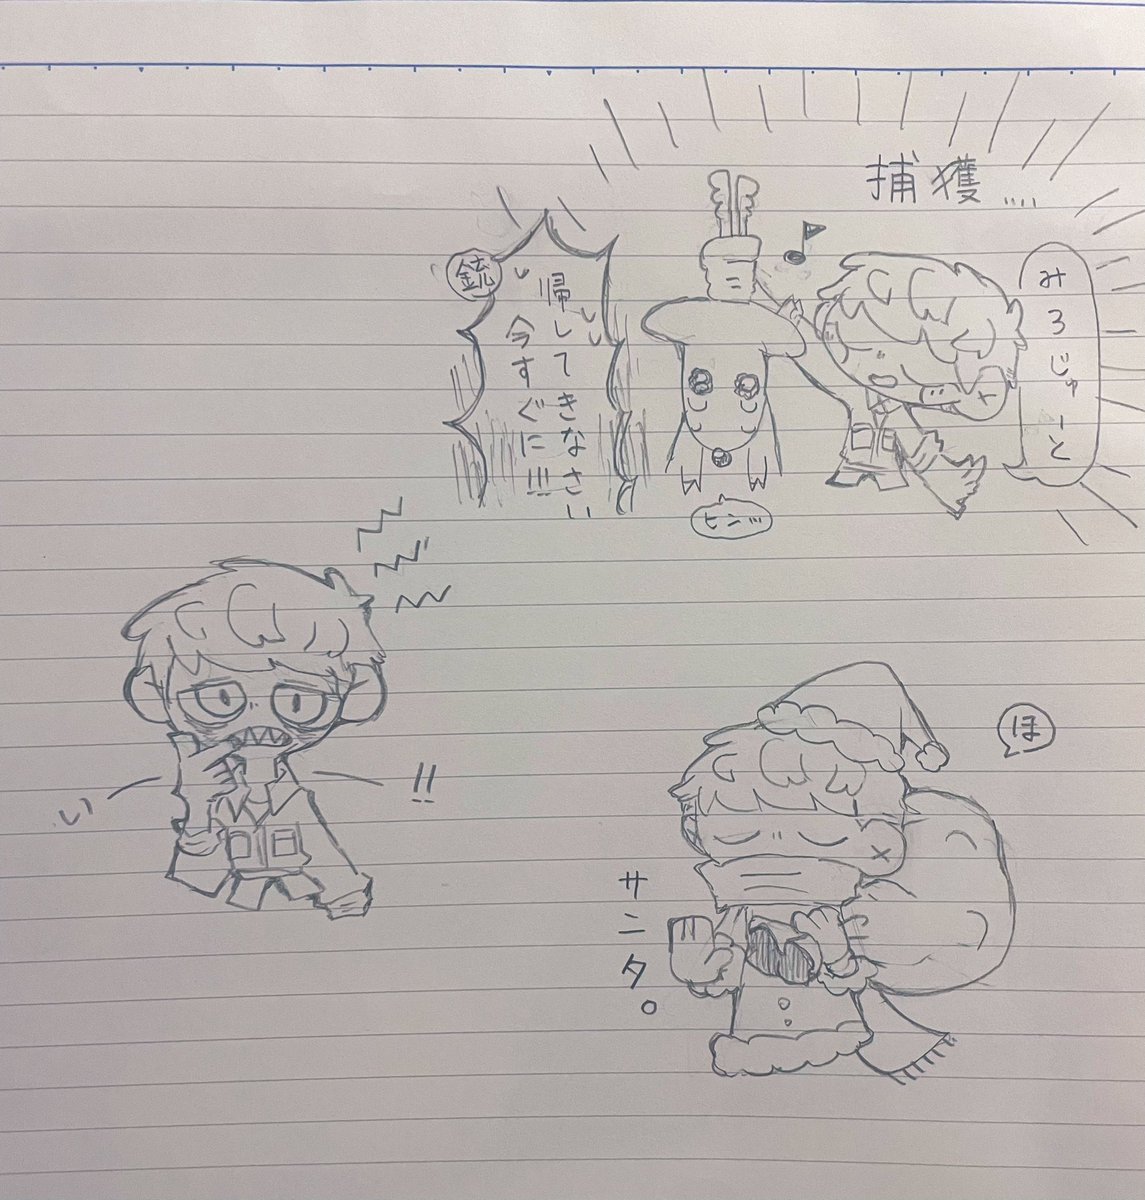 捕獲....
みろじゅーと
銃
帰してきなさい
今すぐに!!!
ヒンッ
い
!!
ほ
サニタ。